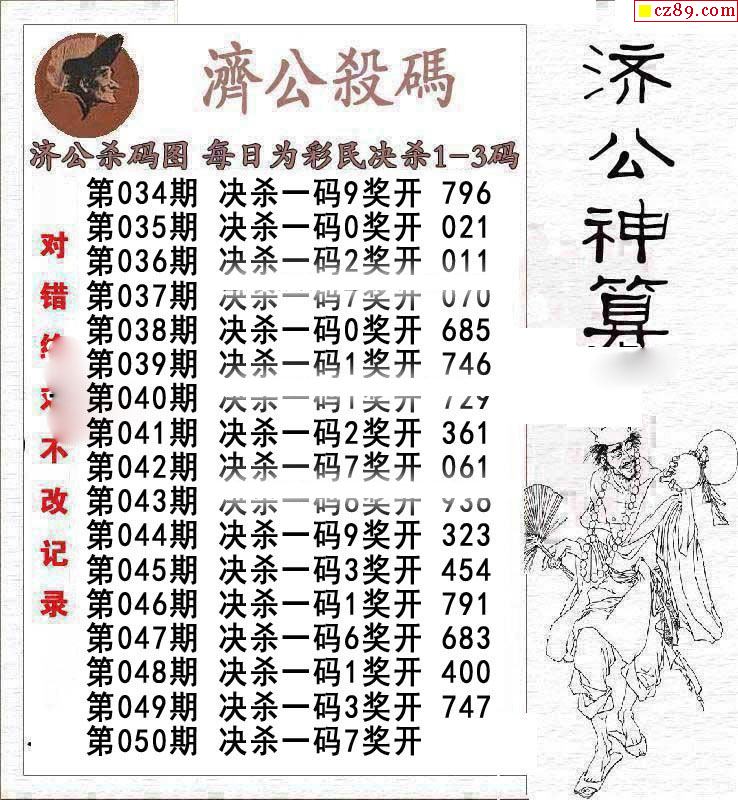 cz89.com
濟公殺碼
济公杀码图 每日为彩民决杀1-3码
第034期 决杀一码9奖开 796
第035期 决杀一码0奖开 021
第036期 决杀一码2奖开 011
第037期 决杀一码7奖开 070
第038期 决杀一码0奖开 685
第039期 决杀一码1奖开 746
第040期 决杀一码1奖开 729
第041期 决杀一码2奖开 361
第042期 决杀一码7奖开 061
第043期 决杀一码8奖开 938
第044期 决杀一码9奖开 323
第045期 决杀一码3奖开 454
第046期 决杀一码1奖开 791
第047期 决杀一码6奖开 683
第048期 决杀一码1奖开 400
第049期 决杀一码3奖开 747
第050期 决杀一码7奖开
对错不改记录
济公神算